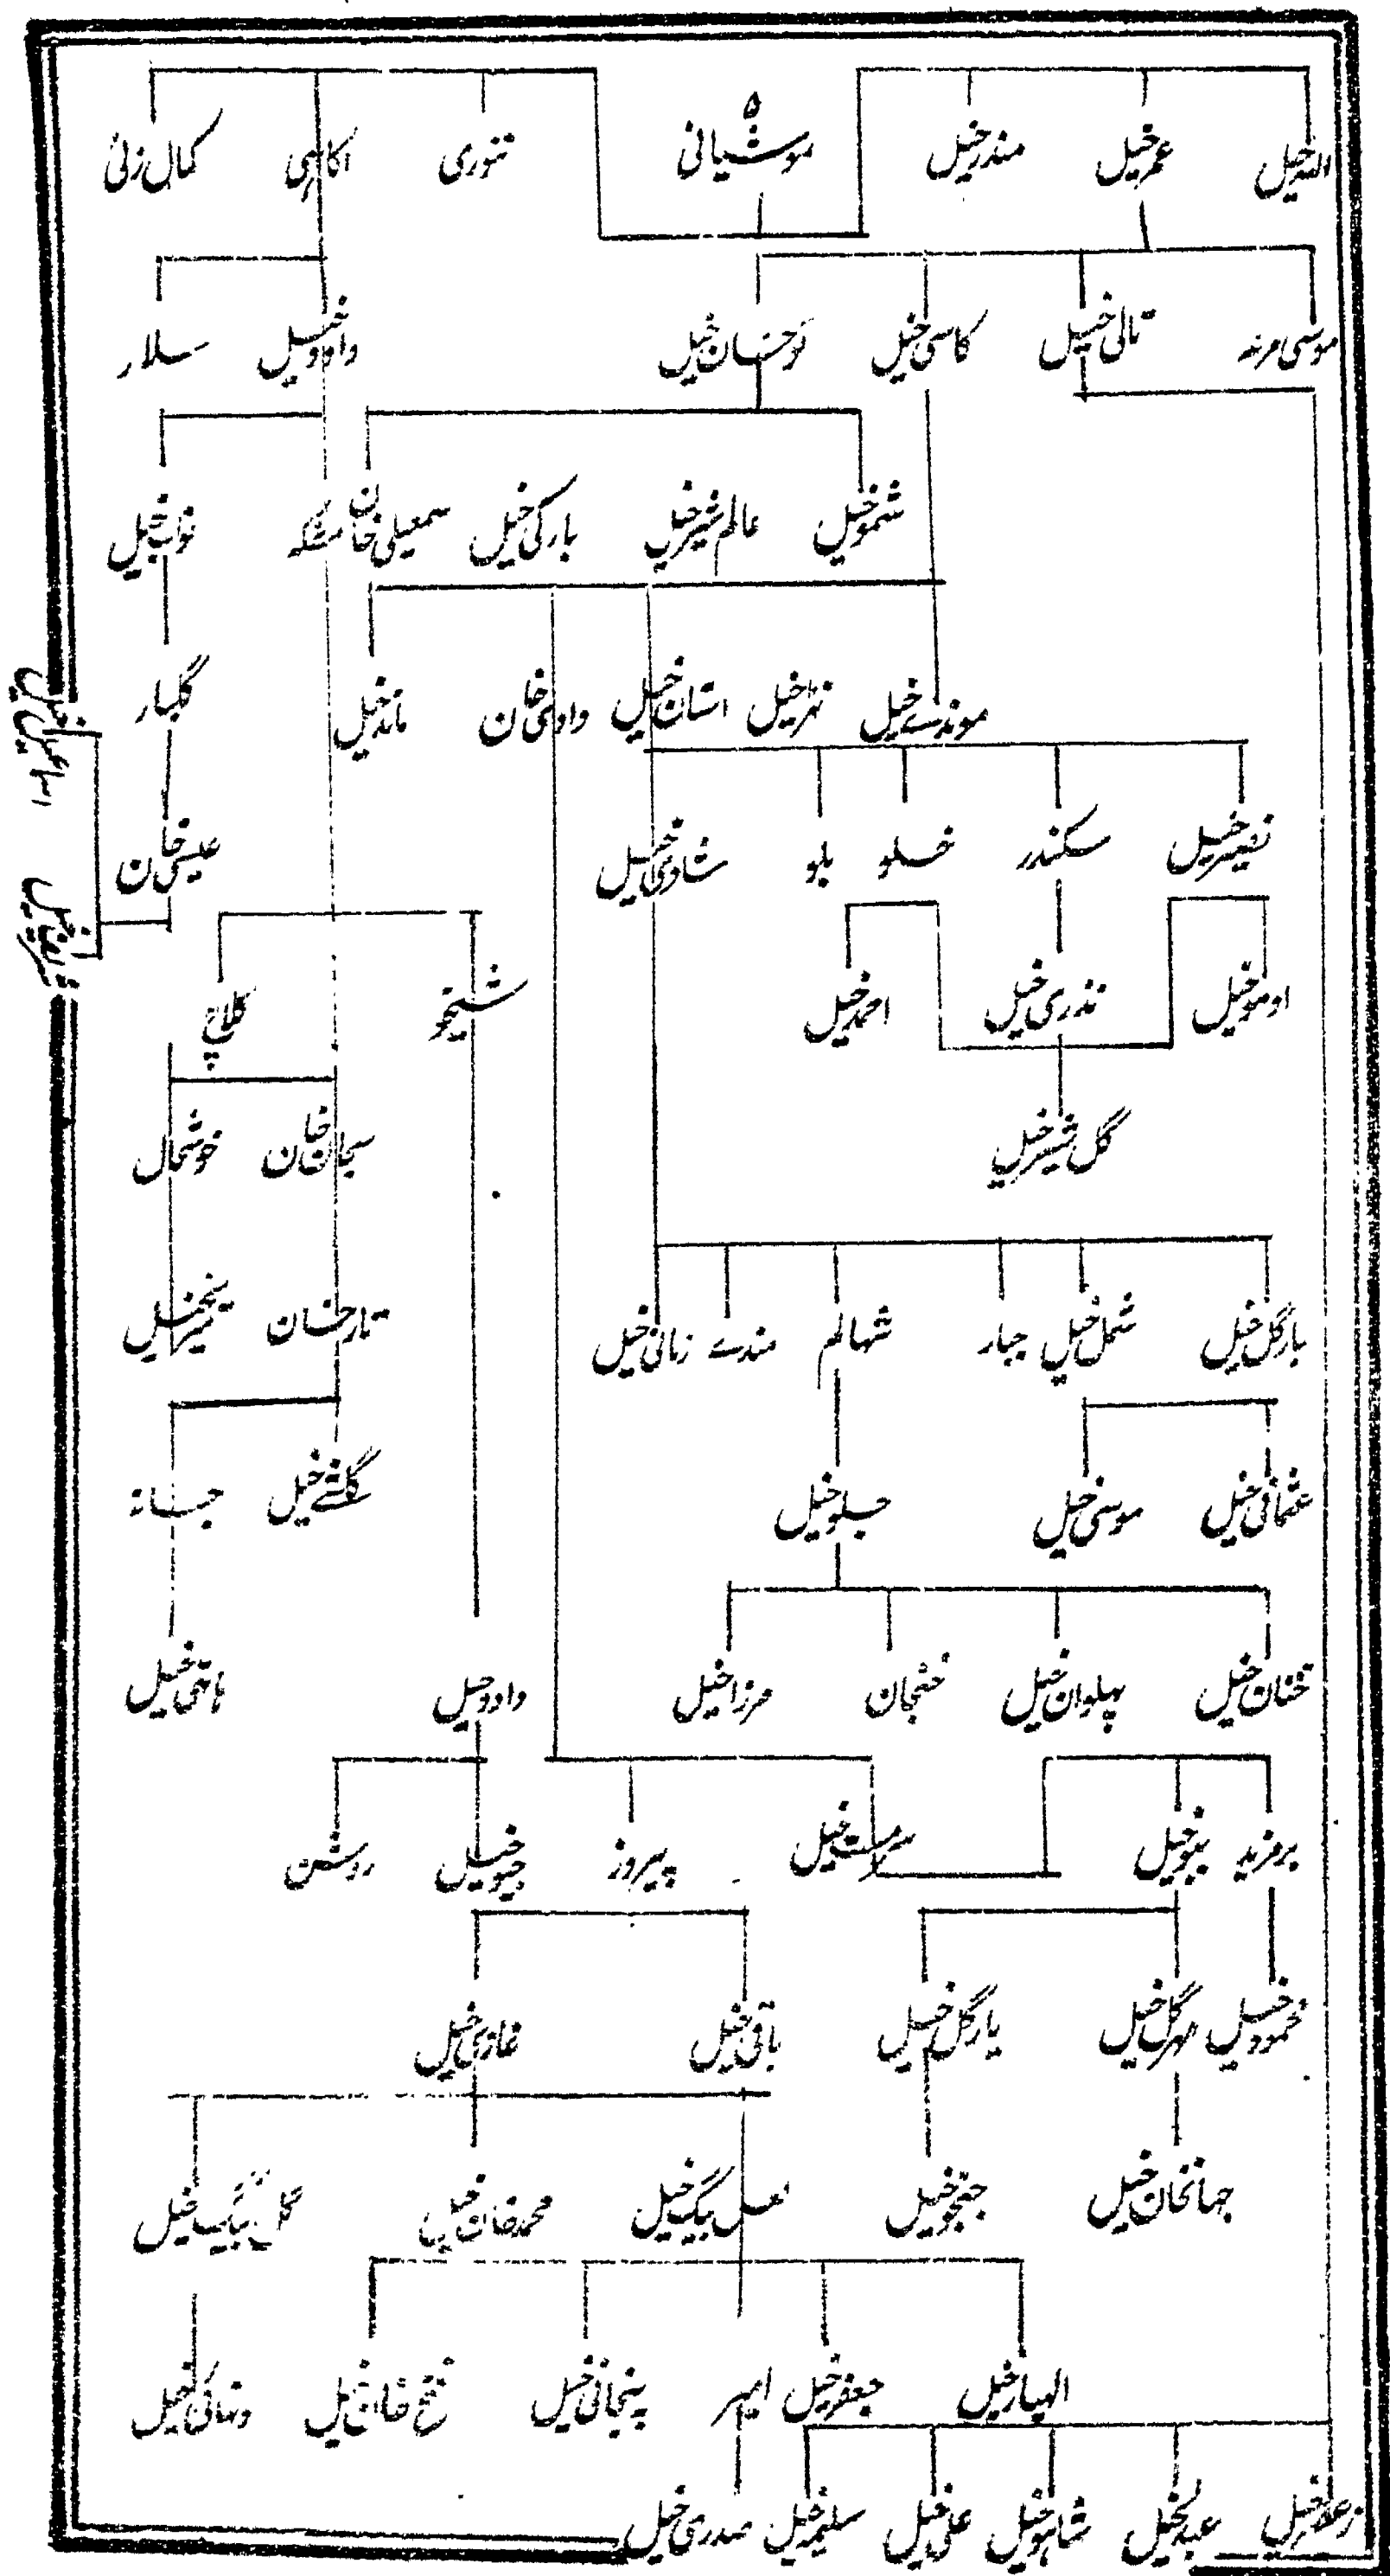 اللہ خیل عمر خیل مندر خیل موشیانی ۵ تنوری اکاہی کمال زئی
موسی مرہٹہ تالی خیل کاسی خیل نوحسان خیل داود خیل سلار
شمو خیل عالم شیر خیل بارکی خیل سمعیلی خان مشکہ نواب خیل
موندے خیل نہر خیل استان خیل وادسی خان ماند خیل گلبار
نصیر خیل سکندر خسلو بلو شادی خیل عیسی خان
اومو خیل نذری خیل احمد خیل شیخو کلاچ
گل شیر خیل سبحان خان خوشحال
بارگل خیل شمل خیل جبار شہالم مندے زمانی خیل تارخان
عثمانی خیل موسی خیل جلو خیل گلشے خیل جانہ
خنان خیل پہلوان خیل خنجان مرزا خیل داود خیل ہاتھی خیل
برمزید ببو خیل سرمست خیل پیروز جیو خیل روشن
محمود خیل مہرگل خیل یارگل خیل باقی خیل غازی خیل
جہانخان خیل جتجو خیل لعل بیگ خیل محمد خان خیل گل بیگ خیل
الہیار خیل جعفر خیل امیر پنجانی خیل فتح خان خیل
عبدل خیل شاہو خیل علی خیل سلیمہ خیل صدری خیل